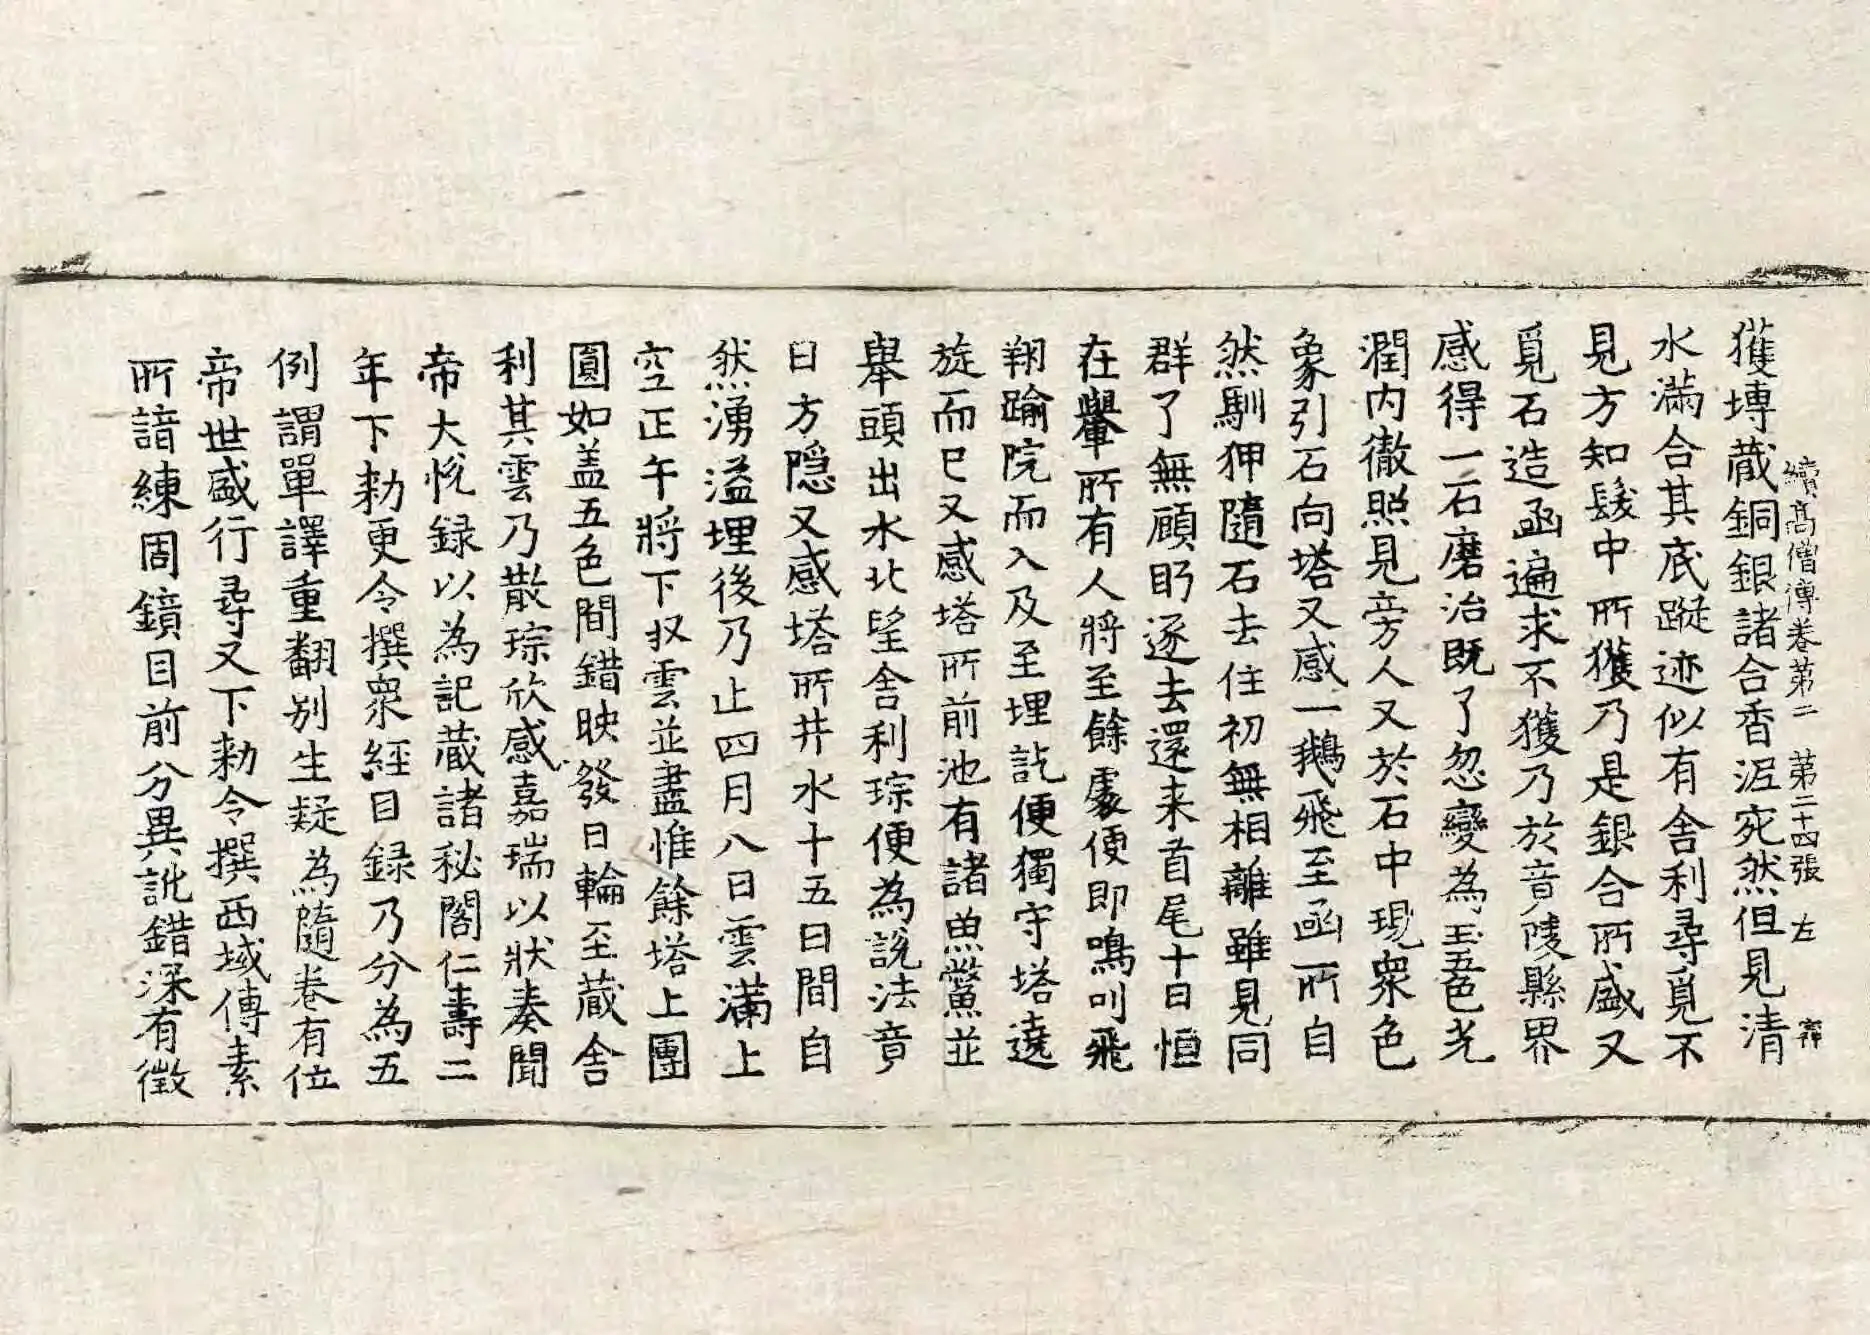 續高僧傳卷第二 第二十四張 左
獲塼蔵銅銀諸合香泥宛然但見清
水滿合其底蹤迹似有舍利尋覓不
見方知髮中所獲乃是銀合所盛又
覓石造函遍求不獲乃於音陵縣界
感得一石磨治既了忽變為玉五色光
潤内徹照見旁人又於石中現衆色
象引石向塔又感一鵝飛至函所自
然馴狎隨石去住初無相離雖見同
群了無顧眄逐去還来首尾十日恒
在轝所有人將至餘處便即鳴叫飛
翔踰院而入及至埋訖便獨守塔遶
旋而已又感塔所前池有諸魚鱉並
舉頭出水北望舍利琮便為說法竟
日方隠又感塔所井水十五日間自
然湧溢埋後乃止四月八日雲滿上
空正午將下収雲並盡惟餘塔上團
圓如盖五色間錯映發日輪至蔵舍
利其雲乃散琮欣感嘉瑞以狀奏聞
帝大悅録以為記蔵諸秘閣仁壽二
年下勑更令撰衆經目録乃分為五
例謂單譯重翻別生疑為隨卷有位
帝世盛行尋又下勑令撰西域傳素
所諳練周鏡目前分異訛錯深有徵